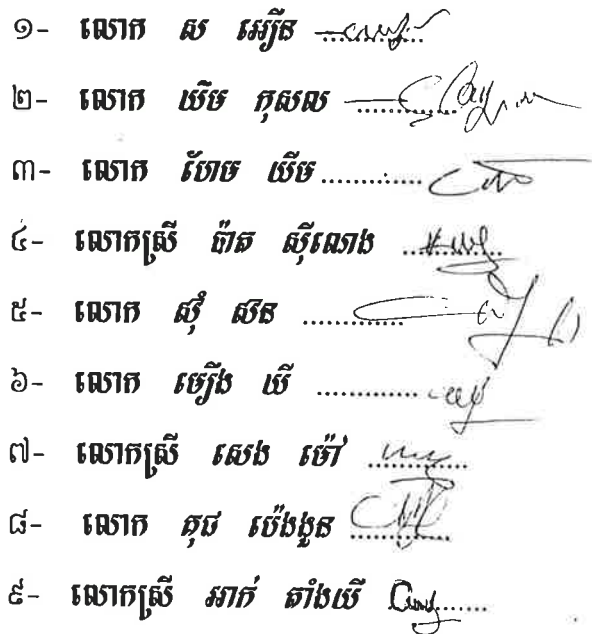 ១- លោក ស អៀន ............
២- លោក ឃីម កុសល ............
៣- លោក ហែម ឃីម ............
៤- លោកស្រី ប៉ាត ស៊ីណេង ............
៥- លោក ស៊ុំ សន ............
៦- លោក ម៉្យើង ឃី ............
៧- លោកស្រី សេង ម៉ៅ ............
៨- លោក គុជ ប៉េងងួន ............
៩- លោកស្រី អាក់ តាំងឃី ............